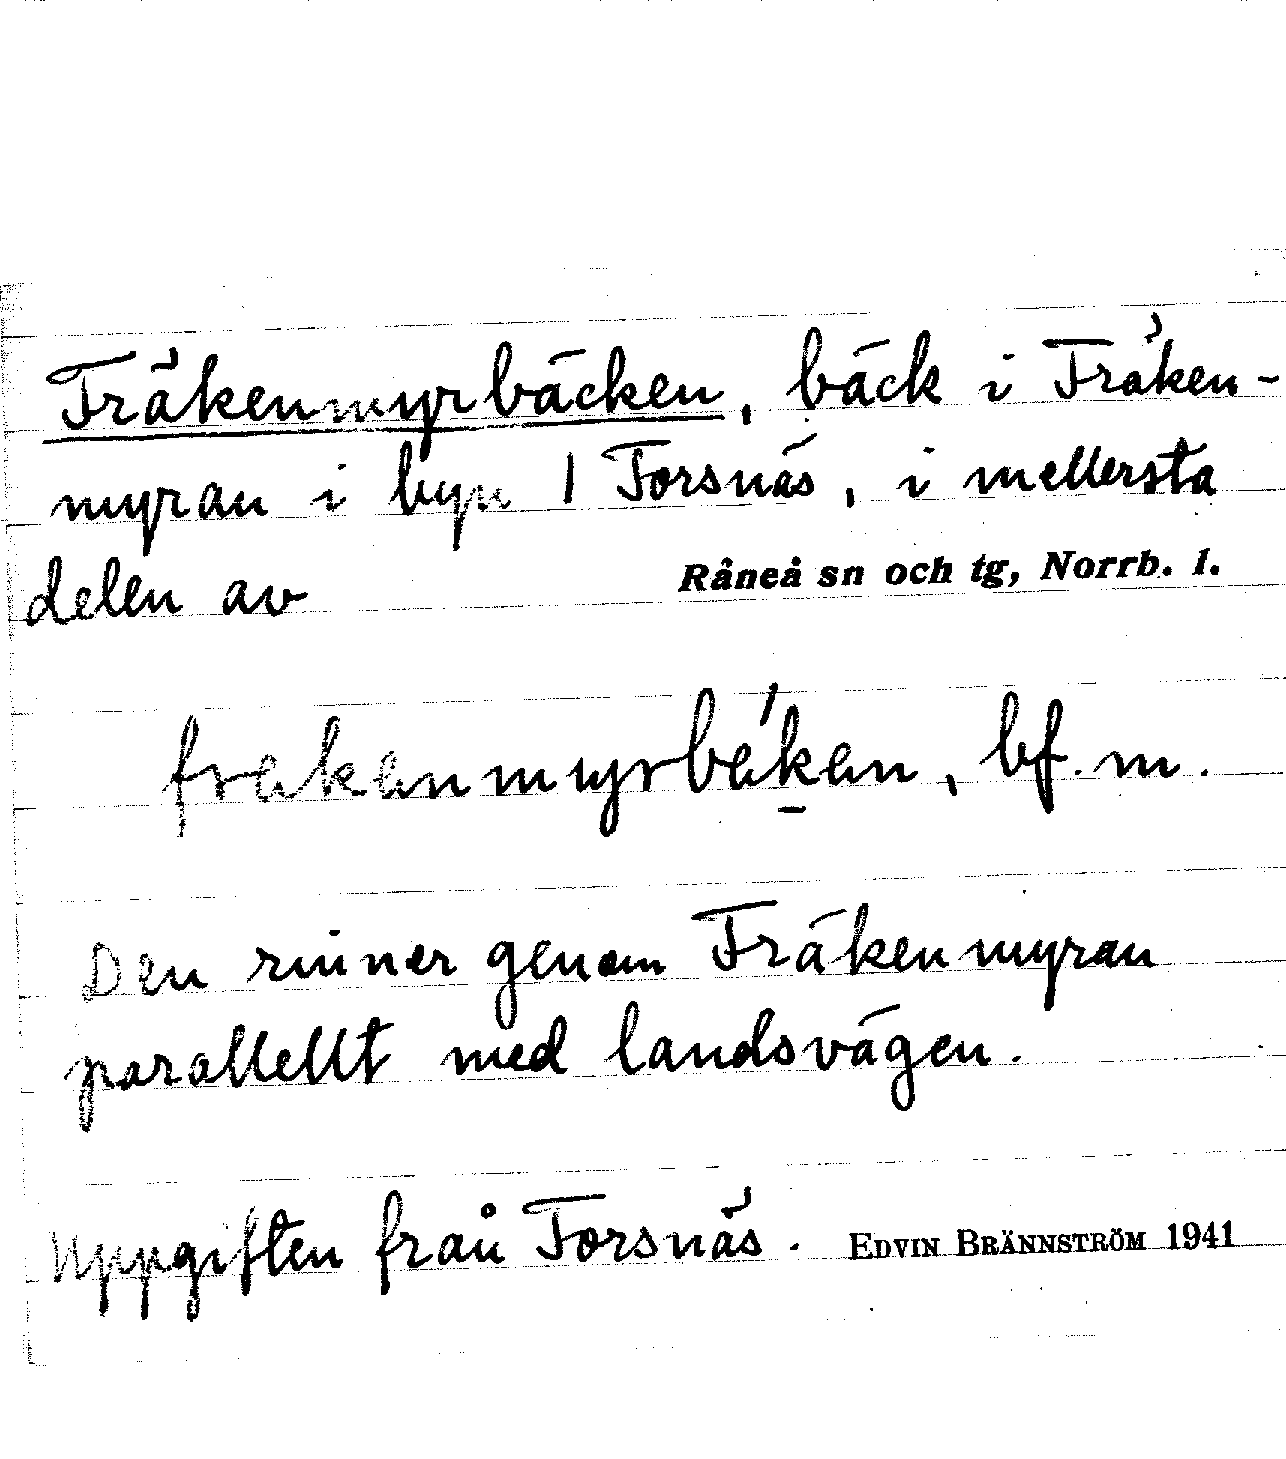 Fräkenmyrbäcken, bäck i Fräken-
myran i byn 1 Forsnäs, i mellersta
delen av Råneå sn och tg, Norrb. l.
frekenmyrbéken, bf. m.
Den rinner genom Fräkenmyran
parallellt med landsvägen.
Uppgiften från Forsnäs. EDVIN BRÄNNSTRÖM 1941